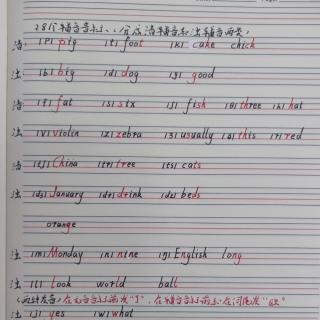 28个辅音音标、(分成清辅音和浊辅音两类)
清 /p/ pig /t/ foot /k/ cake chick
浊 /b/ big /d/ dog /g/ good
清 /f/ fat /s/ six /ʃ/ fish /θ/ three /h/ hat
浊 /v/ violin /z/ zebra /ʒ/ usually /ð/ this /r/ red
清 /tʃ/ China /tr/ tree /ts/ cats
浊 /dʒ/ January /dr/ drink /dz/ beds
orange
浊 /m/ Monday /n/ nine /ŋ/ English long
浊 /l/ look world ball
(两种发音) 在元音音标前发"l", 在辅音音标前和在词尾发
浊 /j/ yes /w/ what